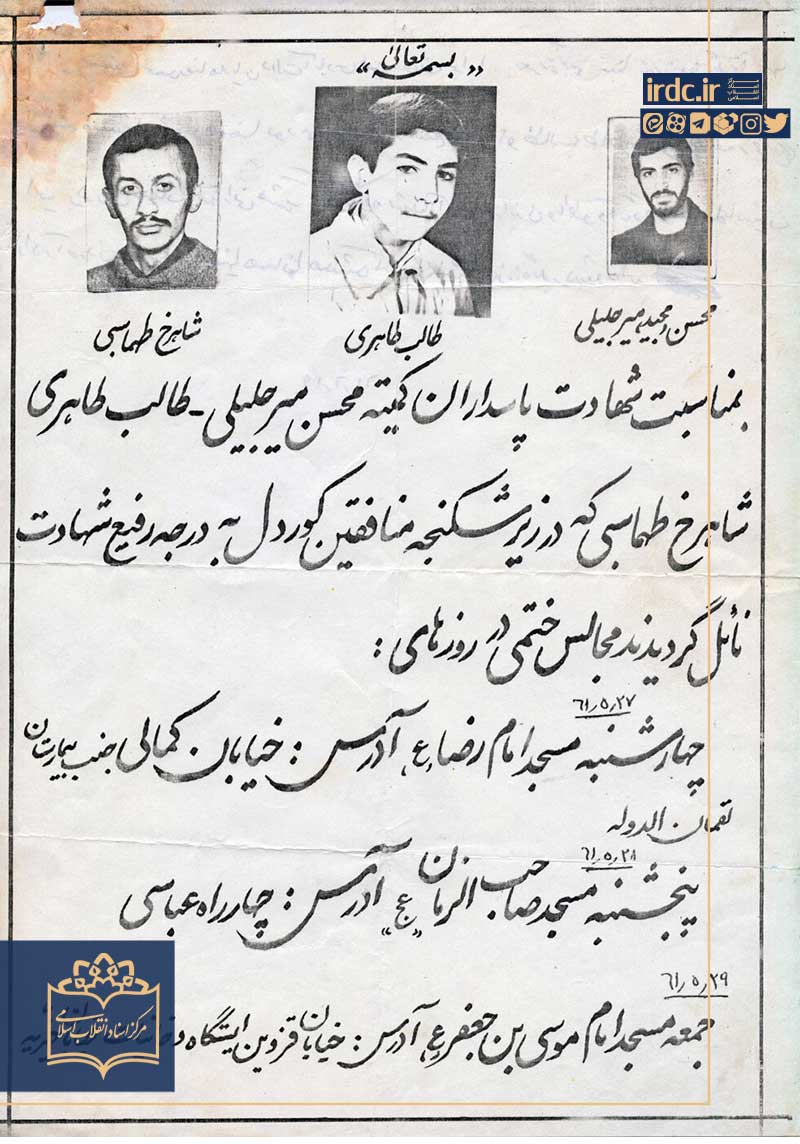 «بسمه تعالی»
irdc.ir
مرکز اسناد انقلاب اسلامی
محسن (مجید) میرجلیلی
طالب طاهری
شاهرخ طهماسبی
بمناسبت شهادت پاسداران کمیته محسن میرجلیلی - طالب طاهری
شاهرخ طهماسبی که در زیر شکنجه منافقین کوردل به درجه رفیع شهادت
نائل گردیدند مجالس ختمی در روزهای :
۶۱٫۵٫۲۷
چهارشنبه مسجد امام رضا (ع) آدرس : خیابان کمالی جنب بیمارستان
لقمان الدوله
۶۱٫۵٫۲۸
پنجشنبه مسجد صاحب الزمان "عج" آدرس : چهارراه عباسی
۶۱٫۵٫۲۹
جمعه مسجد امام موسی بن جعفر (ع) آدرس : خیابان قزوین ایستگاه
مرکز اسناد انقلاب اسلامی